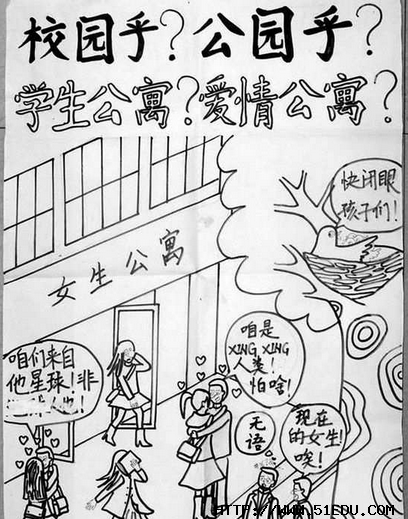 校园乎?公园乎?
学生公寓?爱情公寓?
快闭眼
孩子们!
女生公寓
咱们来自
他星球!非
咱是
XING XING
人类!
怕啥!
无语。
现在
的女生!
唉!
HTTP://WWW.51EDU.COM